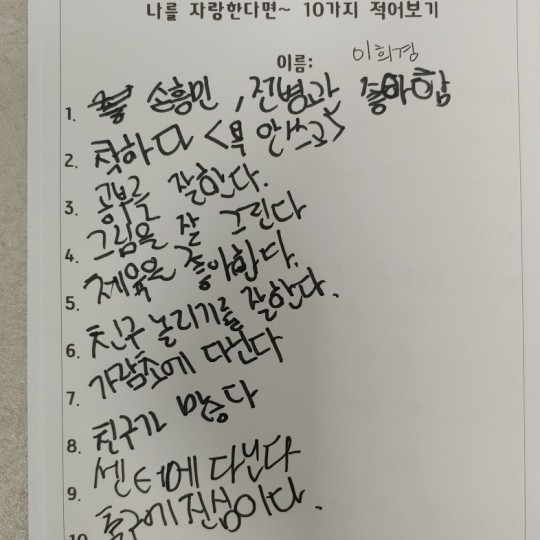 나를 자랑한다면~ 10가지 적어보기
이름: 이희경
1. 손흥민, 전병관 좋아함
2. 착하다 <욕 안쓰고>
3. 공부를 잘한다.
4. 그림을 잘 그린다
5. 체육을 좋아한다.
6. 친구 놀리기를 잘한다.
7. 가람초에 다닌다
8. 친구가 많다
9. 센터에 다닌다
10. 축구에 진심이다.